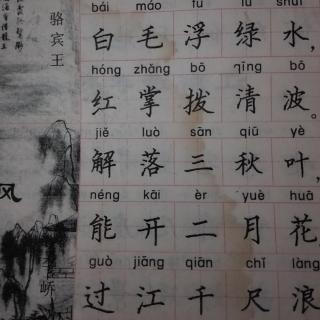 bái máo fú lǜ shuǐ
白毛浮绿水，
hóng zhǎng bō qīng bō
红掌拨清波。
jiě luò sān qiū yè
解落三秋叶，
néng kāi èr yuè huā
能开二月花
guò jiāng qiān chǐ làng
过江千尺浪
骆宾王
风
峤